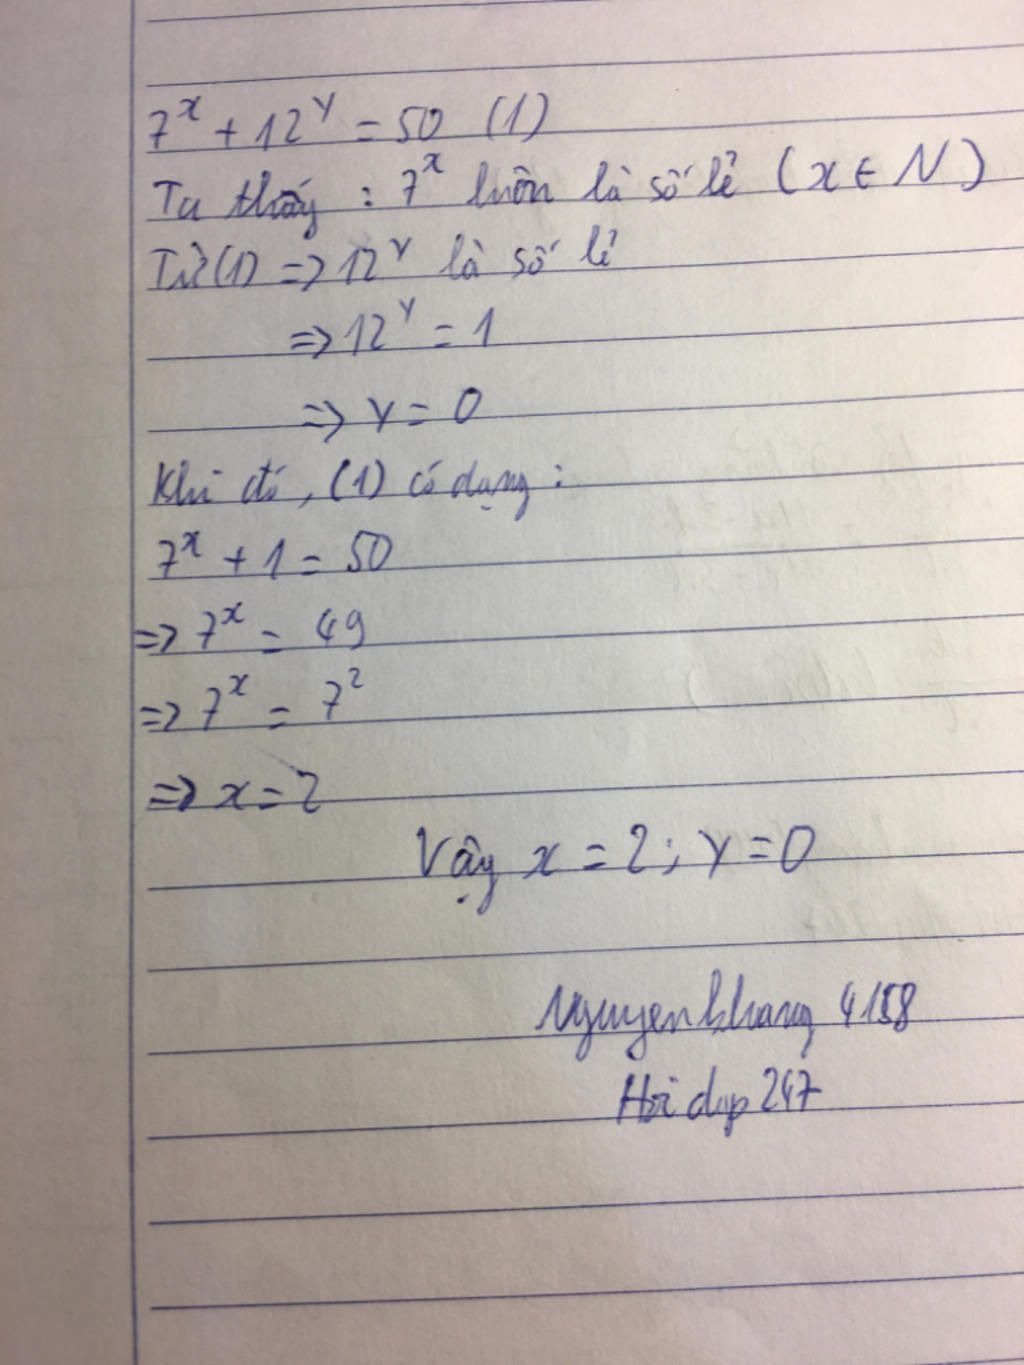 7^x + 12^y = 50 (1)
Ta thấy : 7^x luôn là số lẻ (x ∈ N)
Từ (1) => 12^y là số lẻ
=> 12^y = 1
=> y = 0
Khi đó, (1) có dạng :
7^x + 1 = 50
=> 7^x = 49
=> 7^x = 7^2
=> x = 2
Vậy x = 2 ; y = 0
Nguyenkhang 4158
Hoi dap 247